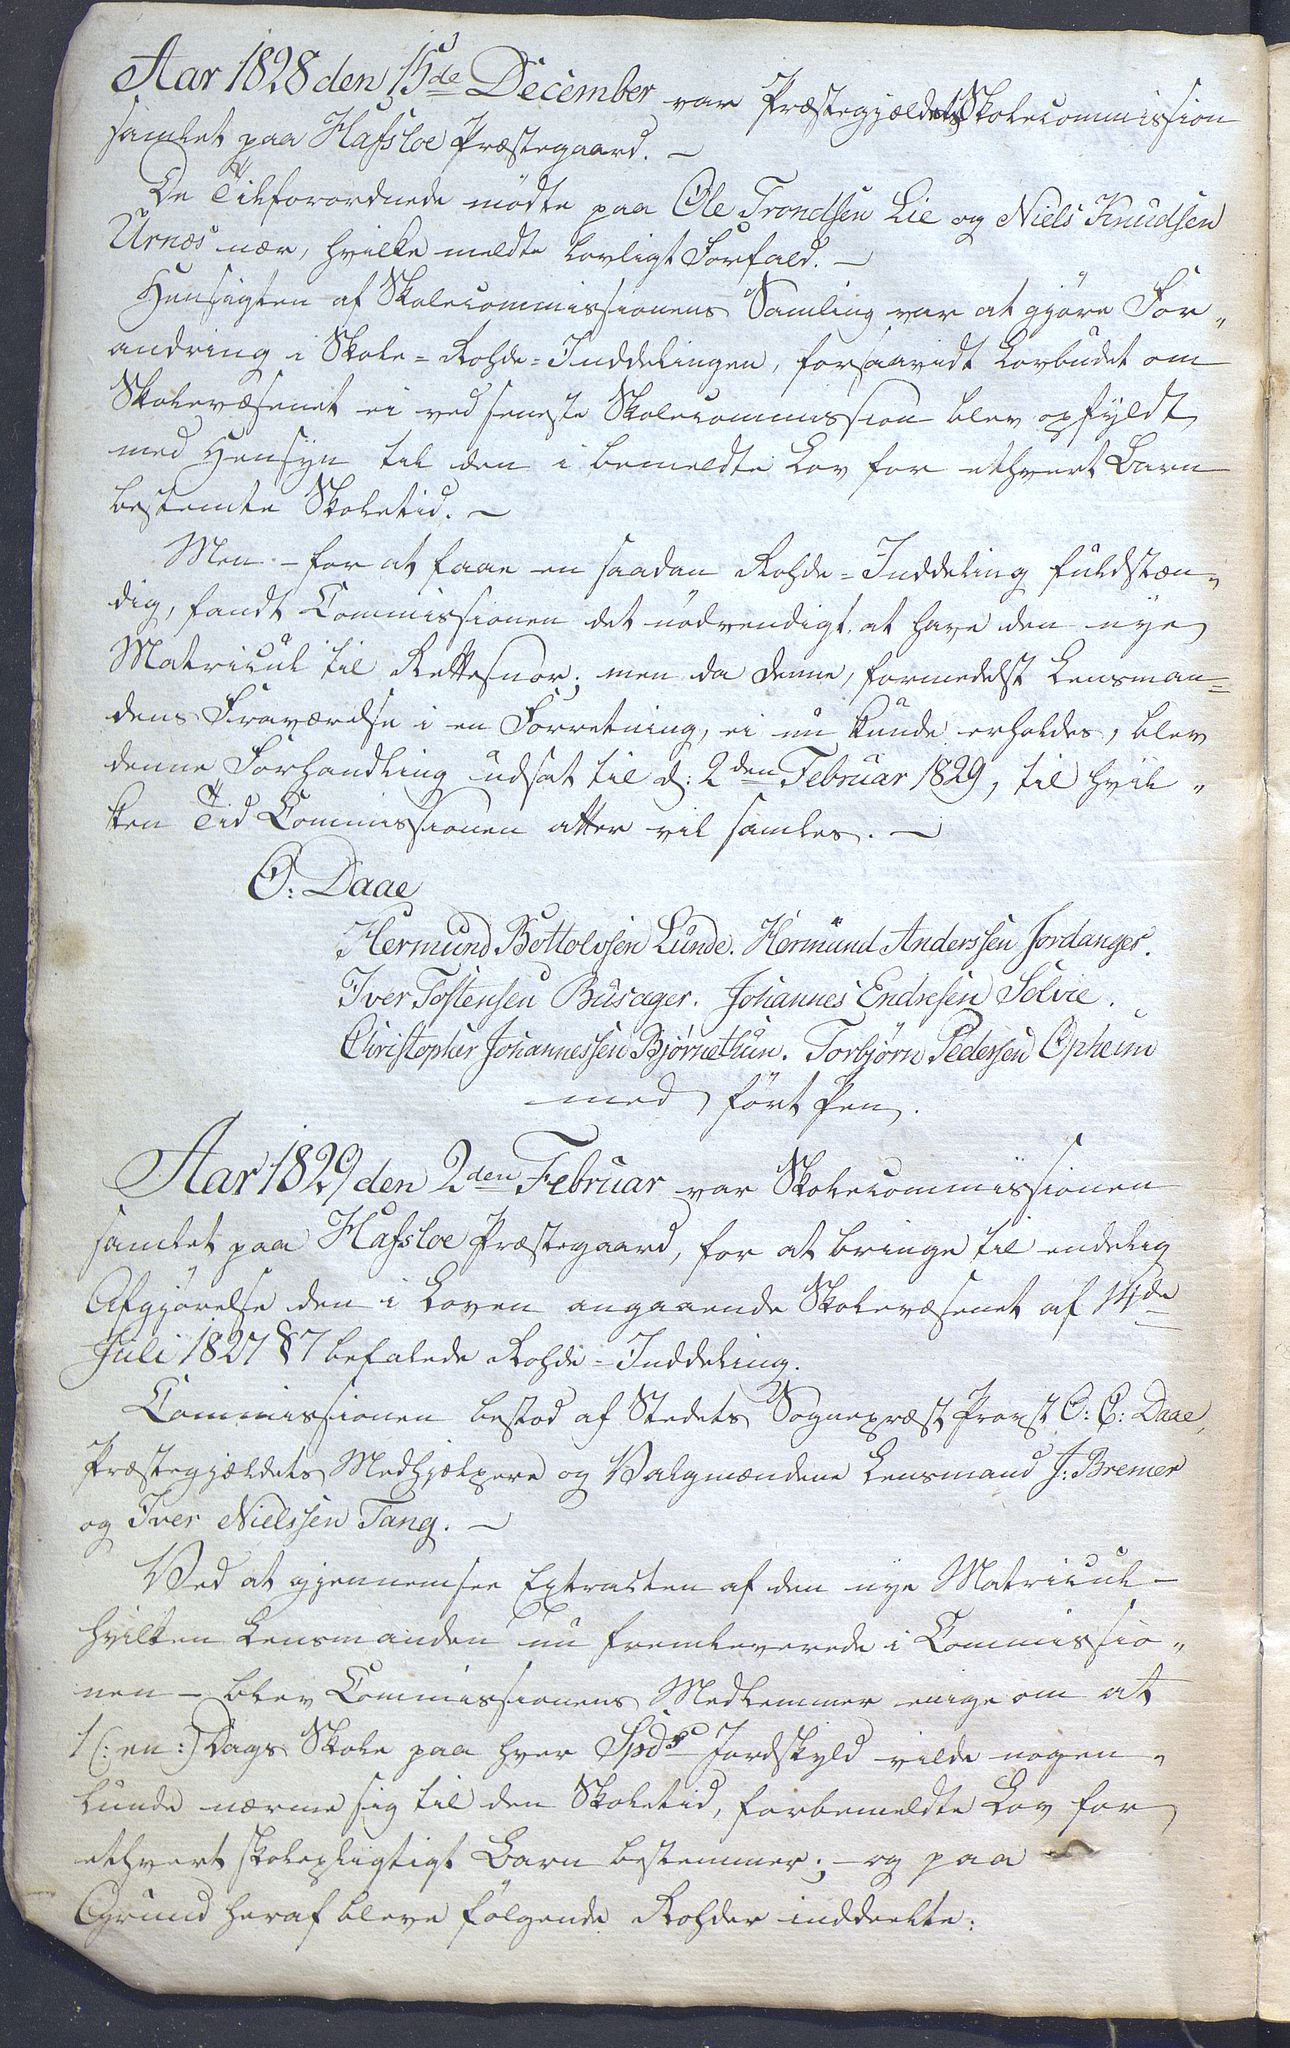 Aar 1828 den 15de December var Præstegjældets Skolecommission
samlet paa Hafsloe Præstegaard. –
De Tilforordnede mødte paa Ole Trondsen Lie og Niels Knudsen
Urnæs nær, hvilke meldte lovligt Forfald. –
Hensigten af Skolecommissionens Samling var at gjöre For„
andring i Skole=Rohde=Inddelingen, forsaavidt Lovbudet om
Skolevæsenet ei ved seneste Skolecommission blev opfyldt
med Hensyn til den i bemeldte Lov for ethvert Barn
bestemte Skoletid. –
Men – for at faae en saadan Rohde=Inddeling fuldstæn„
dig, fandt Commissionen det nödvendigt at have den nye
Matricul til Rettesnor; men da denne, formedelst Lensman=
dens Fraværelse i en Forretning, ei nu kunde erholdes, blev
denne Forhandling udsat til d: 2den Februar 1829, til hvil„
ken Tid Commissionen atter vil samles. –
O: Daae
Hermund Bottolvsen Lunde. Hermund Anderssen Jordanger.
Iver Tostensen Busager. Johannes Endresen Solvie.
Christopher Johannessen Bjørnethun. Torbjørn Pedersen Opheim
med fört Pen.
Aar 1829 den 2den Februar var Skolecommissionen
samlet paa Hafsloe Præstegaard, for at bringe til endelig
Afgjörelse den i Loven angaaende Skolevæsenet af 14de
Juli 1827 §7 befalede Rohde=Inddeling.
Commissionen bestod af Stedets Sognepræst Provst O: E: Daae,
Præstegjældets Medhjelpere og Valgmændene Lensmand J: Bremer
og Iver Nielssen Tang. –
Ved at gjennemsee Extracten af den nye Matricul –
hvilken Lensmanden nu fremleverede i Commissio„
nen – blev Commissionens Medlemmer enige om at
1 (: en :) Dags Skole paa hver Spds Jordskyld vilde nogen„
lunde nærme sig til den Skoletid, forbemeldte Lov for
ethvert skolepligtigt Barn bestemmer; – og paa
Grund heraf bleve fölgende Rohder inddeelte: